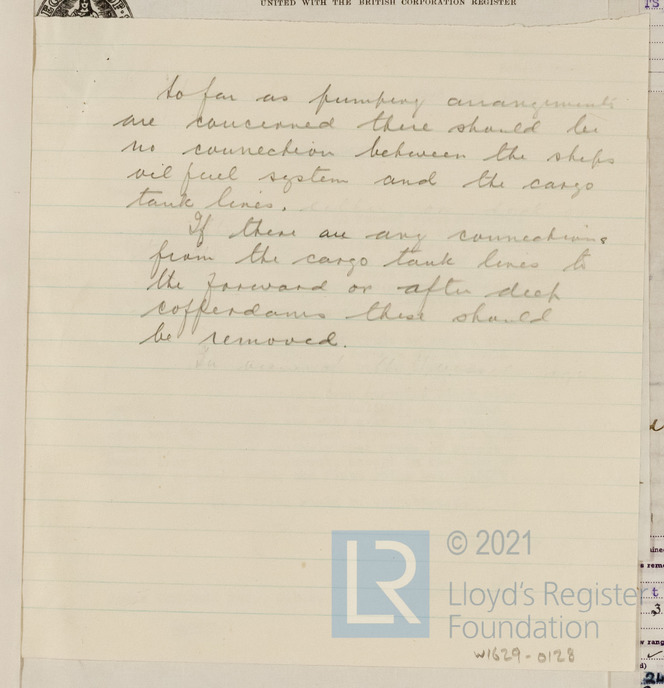 UNITED WITH THE BRITISH CORPORATION REGISTER
So far as pumping arrangements
are concerned there should be
no connection between the ships
oil fuel system and the cargo
tank lines.
If there are any connections
from the cargo tank lines to
the forward or after deep
cofferdams these should
be removed.
LR
© 2021
Lloyd's Register
Foundation
W1629-0128